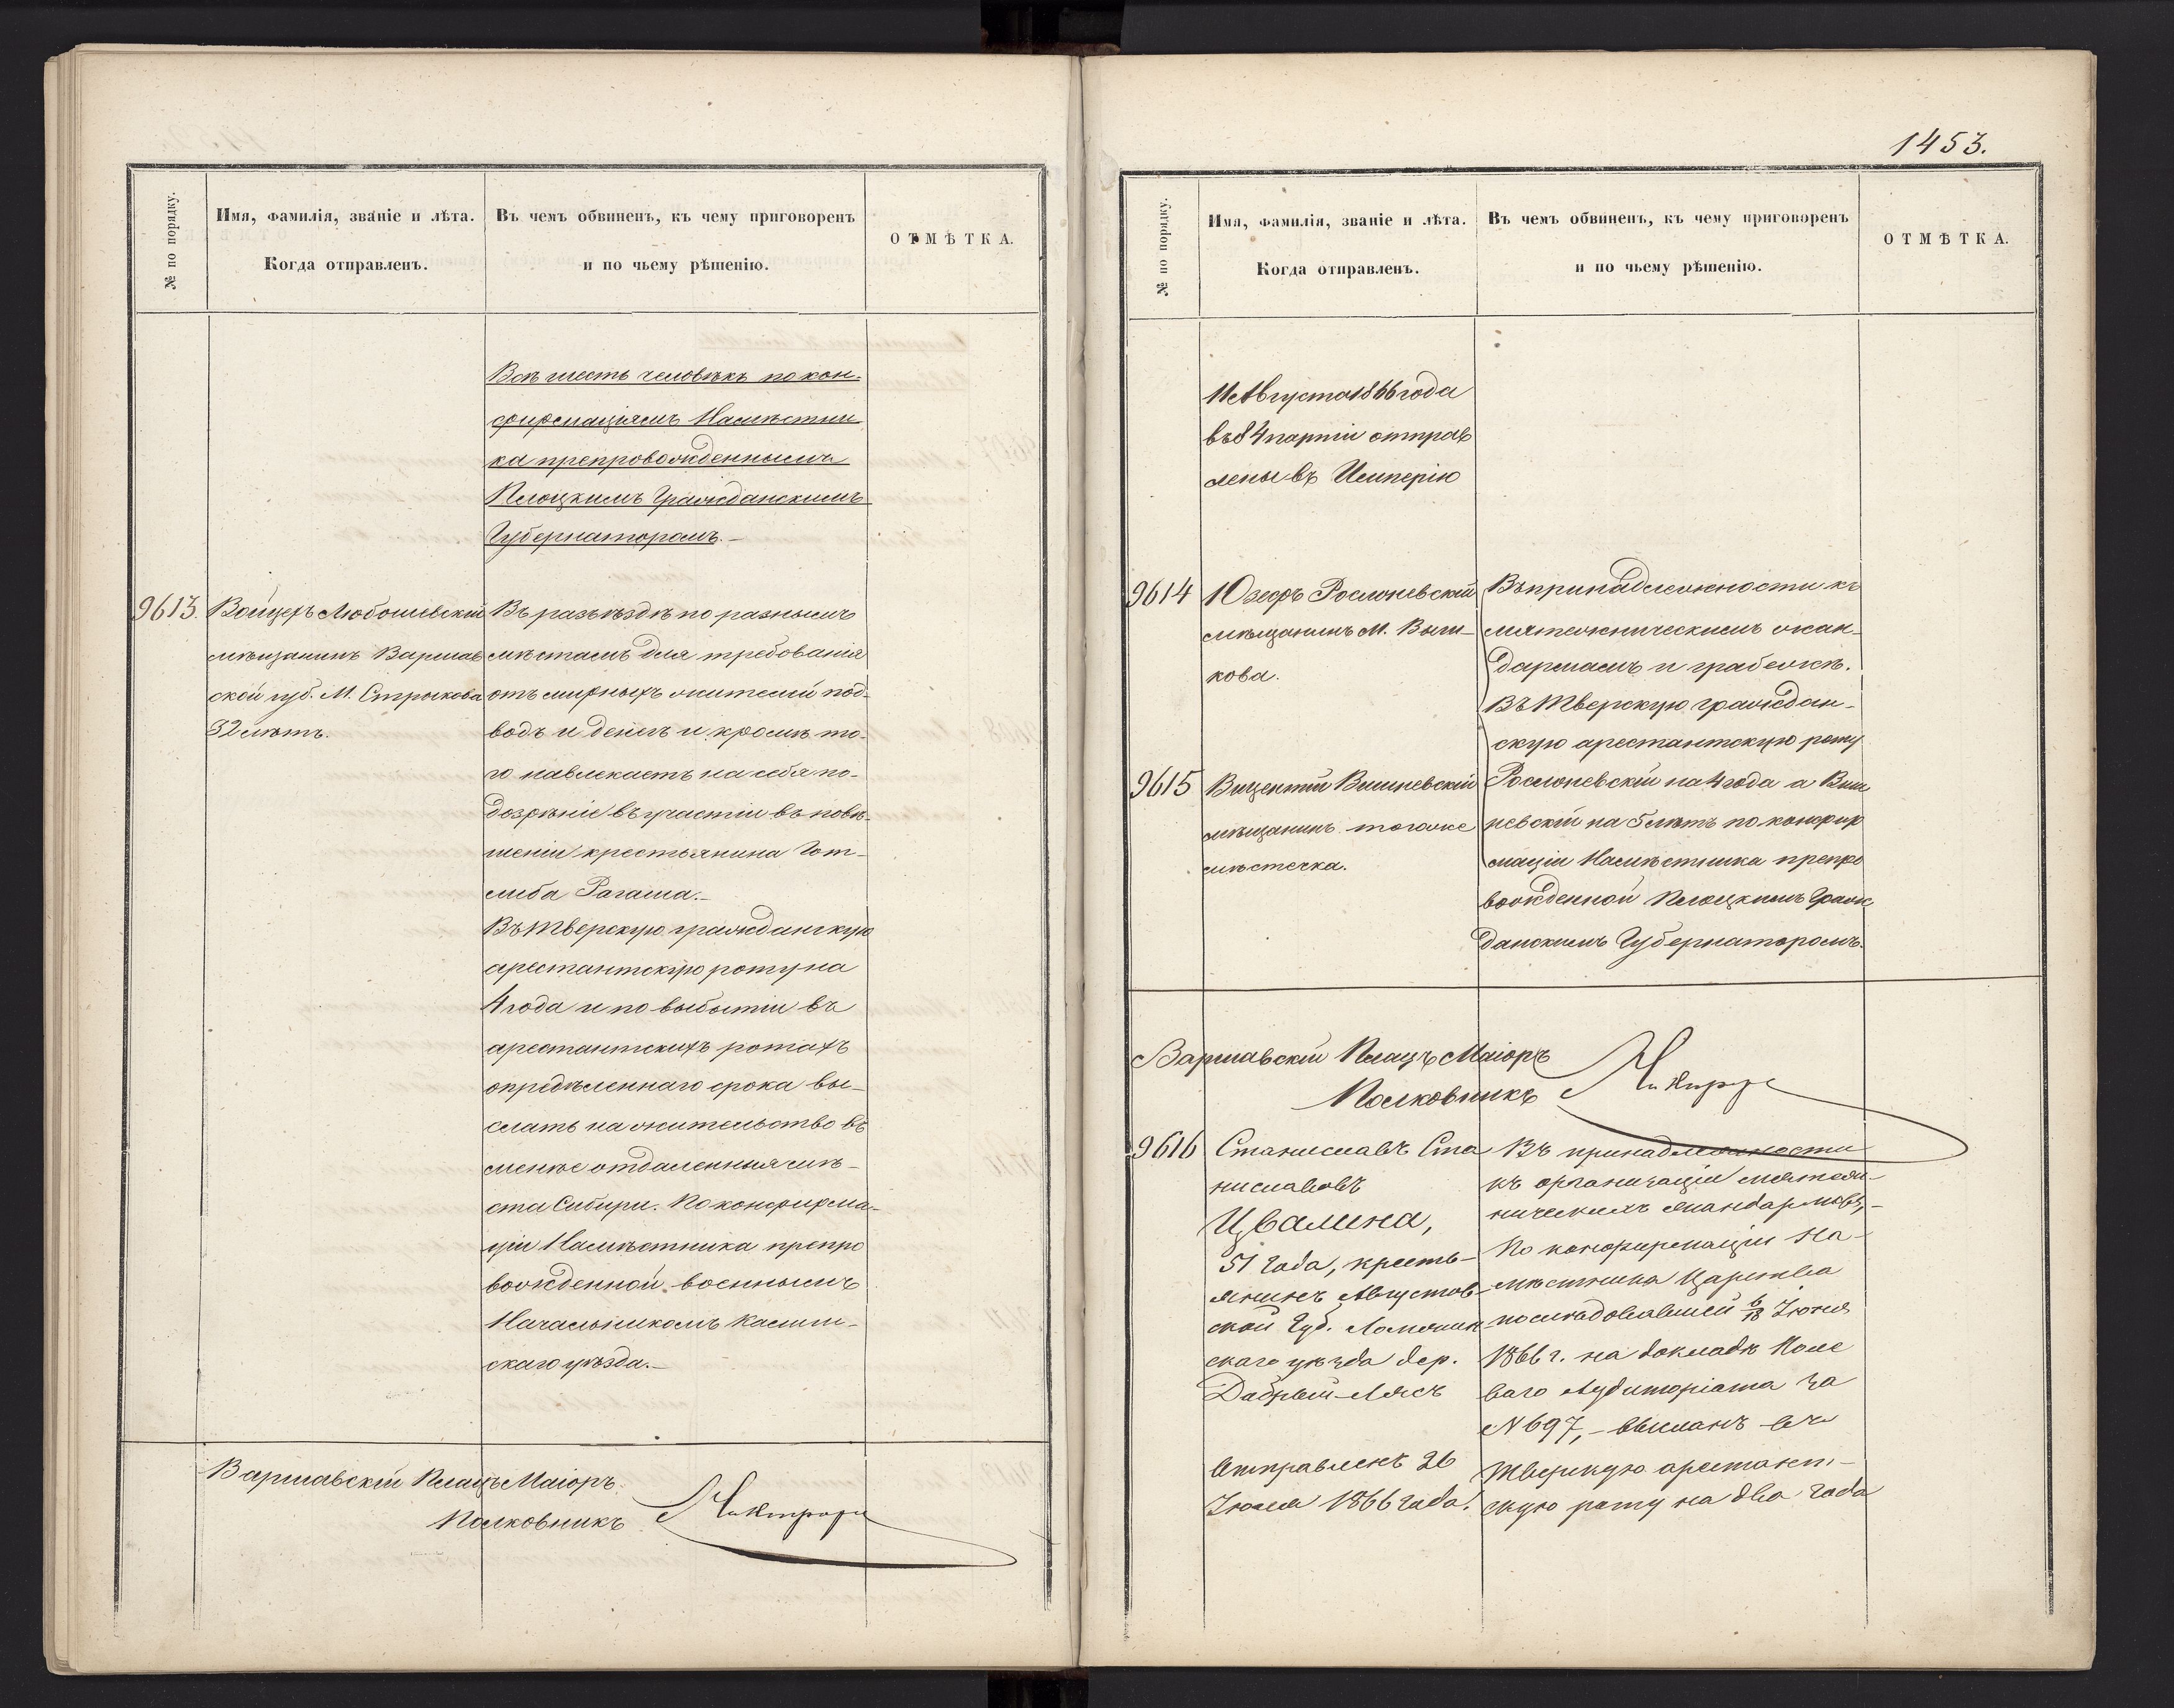 № по порядку.
Имя, фамилія, званіе и лѣта.
Когда отправленъ.
Въ чемъ обвиненъ, къ чему приговоренъ
и по чьему рѣшенію.
ОТМѢТКА.
Всѣ шесть человѣкъ по кон-
фирмаціямъ Намѣстни
ка препровожденнымъ
Плоцкимъ Гражданскимъ
Губернаторомъ.-
9613.
Войцехъ Любошевскій
мѣщанинъ Варшав
ской губ. М. Стрыкова
32 лѣтъ.
Въ разъѣздѣ по разнымъ
мѣстамъ для требованія
отъ мирныхъ жителей под-
водъ и денегъ и кромѣ то-
го навлекаетъ на себя по-
дозрѣніе въ участіи въ повѣ-
шеніи крестьянина Гот-
либа Рагаша.-
Въ Тверскую гражданскую
арестантскую роту на
4 года и по выбытіи въ
арестантскихъ ротахъ
опредѣленнаго срока вы-
слать на жительство въ
менѣе отдаленныя мѣ-
ста Сибири. По конфирма-
ціи Намѣстника препро
вожденной военнымъ
Начальникомъ
скаго уѣзда.-
Варшавскій Плацъ Маіоръ
Полковникъ
1453.
№ по порядку.
Имя, фамилія, званіе и лѣта.
Когда отправленъ.
Въ чемъ обвиненъ, къ чему приговоренъ
и по чьему рѣшенію.
ОТМѢТКА.
11 Августа 1866 года
въ 84 партіи отправ
лены въ Имперію
9614
Юзефъ Рослоневскій
мѣщанинъ М. Выш-
кова.
Въ принадлежности къ
мятежническимъ жан-
дармамъ и грабежѣ.
Въ Тверскую граждан-
скую арестантскую роту
Рослоневскій на 4 года а Виш
невскій на 5 лѣтъ по конфир
маціи Намѣстника препро
вожденной Плоцкимъ Граж
данскимъ Губернаторомъ.
9615
Вицентій Вишневскій
мѣщанинъ тогоже
мѣстечка.
Варшавскій Плацъ Маіоръ
Полковникъ
9616
Станиславъ Ста
ниславовъ
Цвалина,
51 года, кресть-
янинъ Августов-
ской Губ. Ломжин
скаго уѣзда дер.
Добрый-Лясъ
Отправленъ 26
Іюля 1866 года.
Въ принадлежности
къ организаціи мятеж-
ническихъ жандармовъ,-
По конфирмаціи На-
мѣстника Царства
послѣдовавшей 6/18 Іюня
1866 г. на докладѣ Поле
ваго Аудиторіата за
№ 697,- высланъ въ
Тверскую арестант-
скую роту на два года